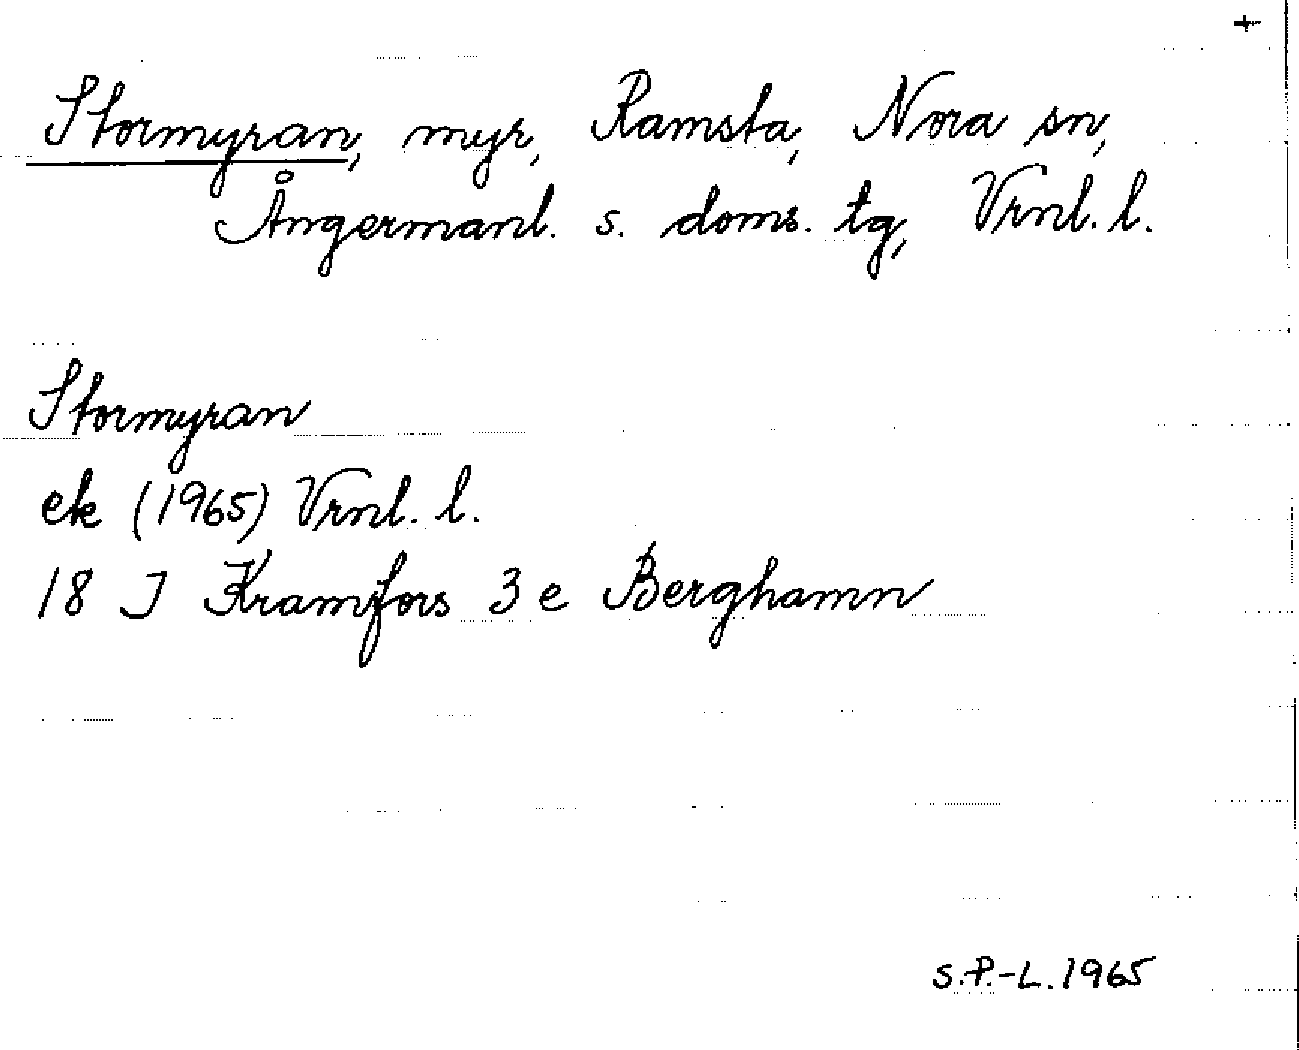 +
Stormyran, myr, Ramsta, Nora sn,
Ångermanl. s. doms. tg, Vrnl. l.
Stormyran
ek (1965) Vrnl. l.
18 J Kramfors 3 e Berghamn
S.P.-L. 1965